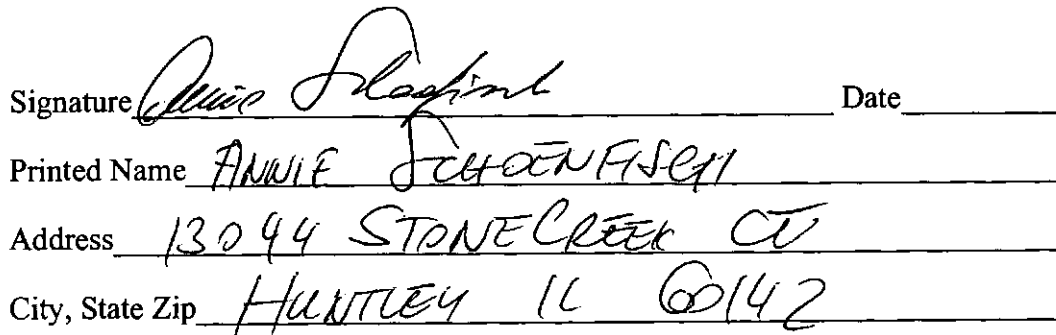 Signature Annie Schoenfisch Date
Printed Name ANNIE SCHOENFISCH
Address 13044 STONECREEK CT
City, State Zip HUNTLEY IL 60142